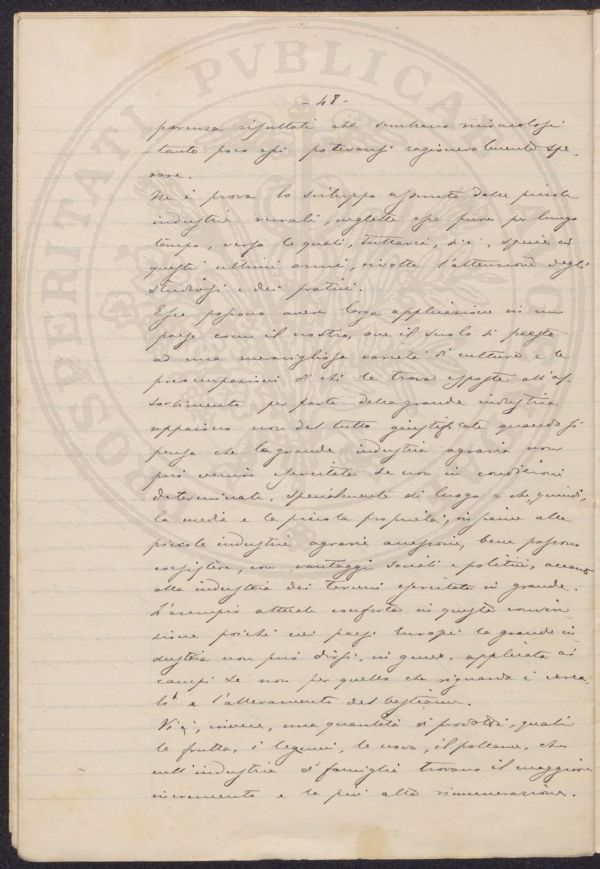 - 48 -
parenza risultati che sembrano miracolosi
tanto poco essi potevansi ragionevolmente spe-
rare.
Ne è prova lo sviluppo assunto dalle piccole
industrie rurali, neglette esse pure per lungo
tempo, verso le quali, tuttavia, s'è, specie in
questi ultimi anni, rivolta l'attenzione degli
studiosi e dei pratici.
Esse possono avere larga applicazione in un
paese come il nostro, ove il suolo si presta
ad una meravigliosa varietà di culture e le
preoccupazioni di chi le trova esposte all'as-
sorbimento per parte della grande industria
appaiono non del tutto giustificate quando si
pensa che la grande industria agraria non
può venire esercitata se non in condizioni
determinate, specialmente di luogo e che, quindi,
la media e la piccola proprietà, insieme alle
piccole industrie agrarie annesse, bene possono
coesistere, con vantaggi sociali e politici, accanto
alla industria dei terreni esercitata in grande.
L'esempio attuale conforta in questa convin-
zione poichè nei paesi Europei la grande in-
dustria non può dirsi, in genere, applicata ai
campi se non per quello che riguarda i cerea-
li e l'allevamento del bestiame.
Vi è, invece, una quantità di prodotti, quali
le frutta, i legumi, le uova, il pollame, che
nell'industria di famiglia trovano il maggiore
incremento e la più alta rimunerazione.
PROSPERITATI PVBLICAE